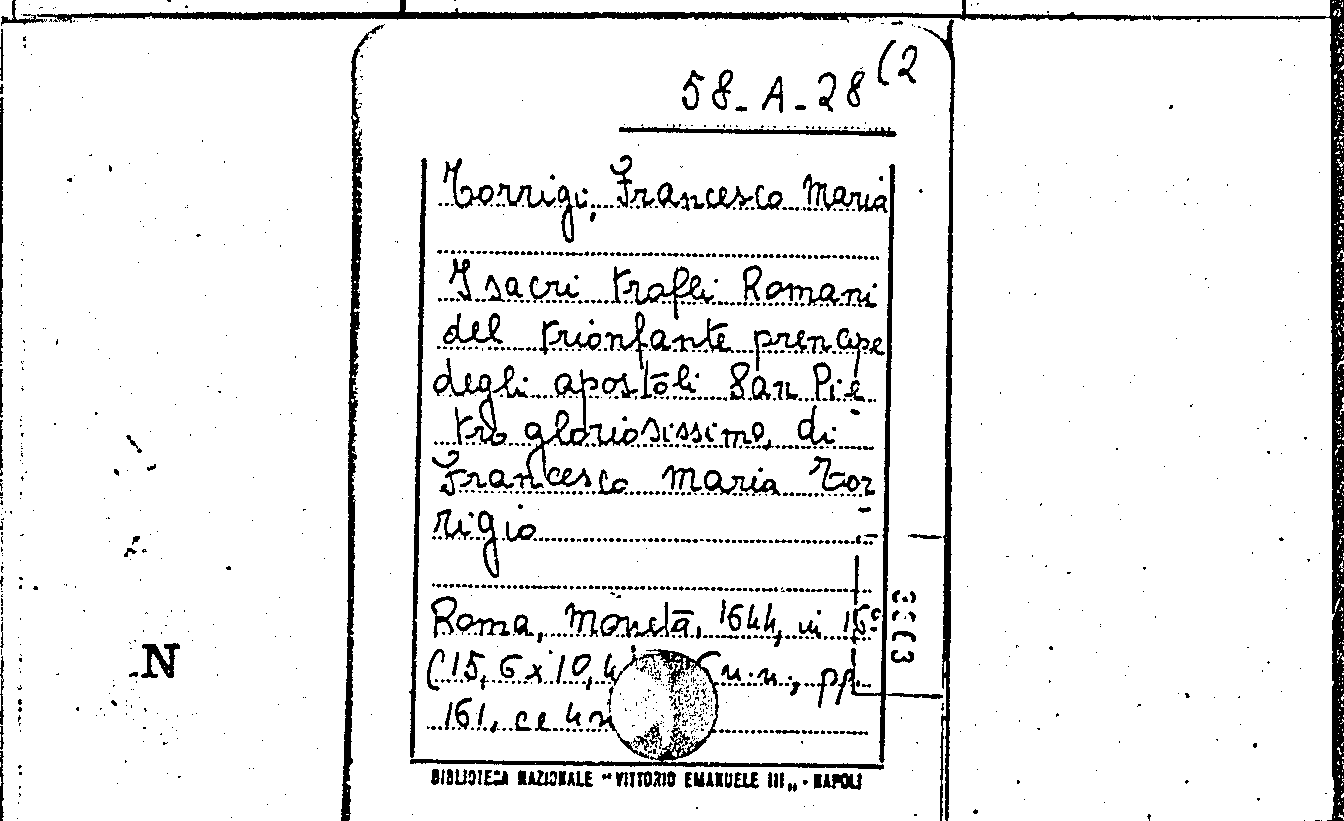 58-A-28 (2
Torrigi, Francesco Maria
I sacri trofei Romani
del trionfante prencipe
degli apostoli San Pie-
tro gloriosissimo, di
Francesco Maria Tor-
rigio
Roma, Moneta, 1644, in 16º
(15,6 x 10,4 6 n.n., pp.
161, cc 4 n
N
BIBLIOTECA NAZIONALE "VITTORIO EMANUELE III„ - NAPOLI